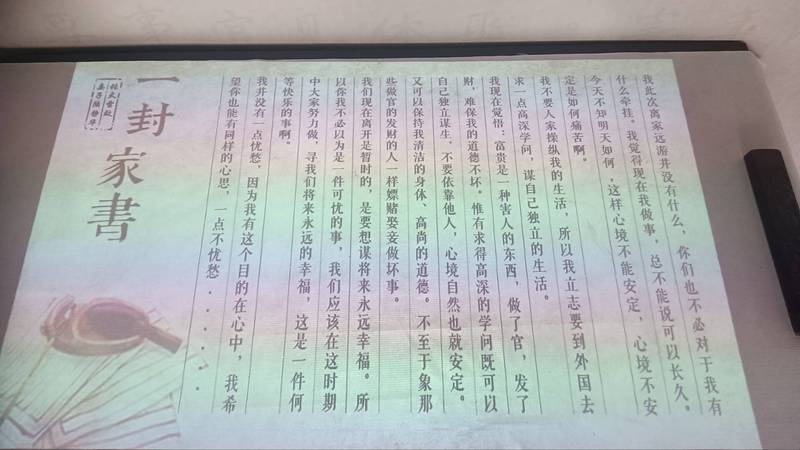 一封家書
張太雷致
妻子陸靜華
我此次离家远游并没有什么，你们也不必对于我有
什么牵挂。我觉得现在我做事，总不能说可以长久。
今天不知明天如何，这样心境不能安定，心境不安
定是如何痛苦啊。
我不要人家操纵我的生活，所以我立志要到外国去
求一点高深学问，谋自己独立的生活。
我现在觉悟：富贵是一种害人的东西，做了官，发了
财，难保我的道德不坏。惟有求得高深的学问既可以
自己独立谋生，不要依靠他人，心境自然也就安定。
又可以保持我清洁的身体、高尚的道德。不至于象那
些做官的发财的人一样嫖赌娶妾做坏事。
我们现在离开是暂时的，是要想谋将来永远幸福。所
以你我不必以为是一件可忧的事，我们应该在这时期
中大家努力做，寻我们将来永远的幸福，这是一件何
等快乐的事啊。
我并没有一点忧愁，因为我有这个目的在心中，我希
望你也能有同样的心思，一点不忧愁......